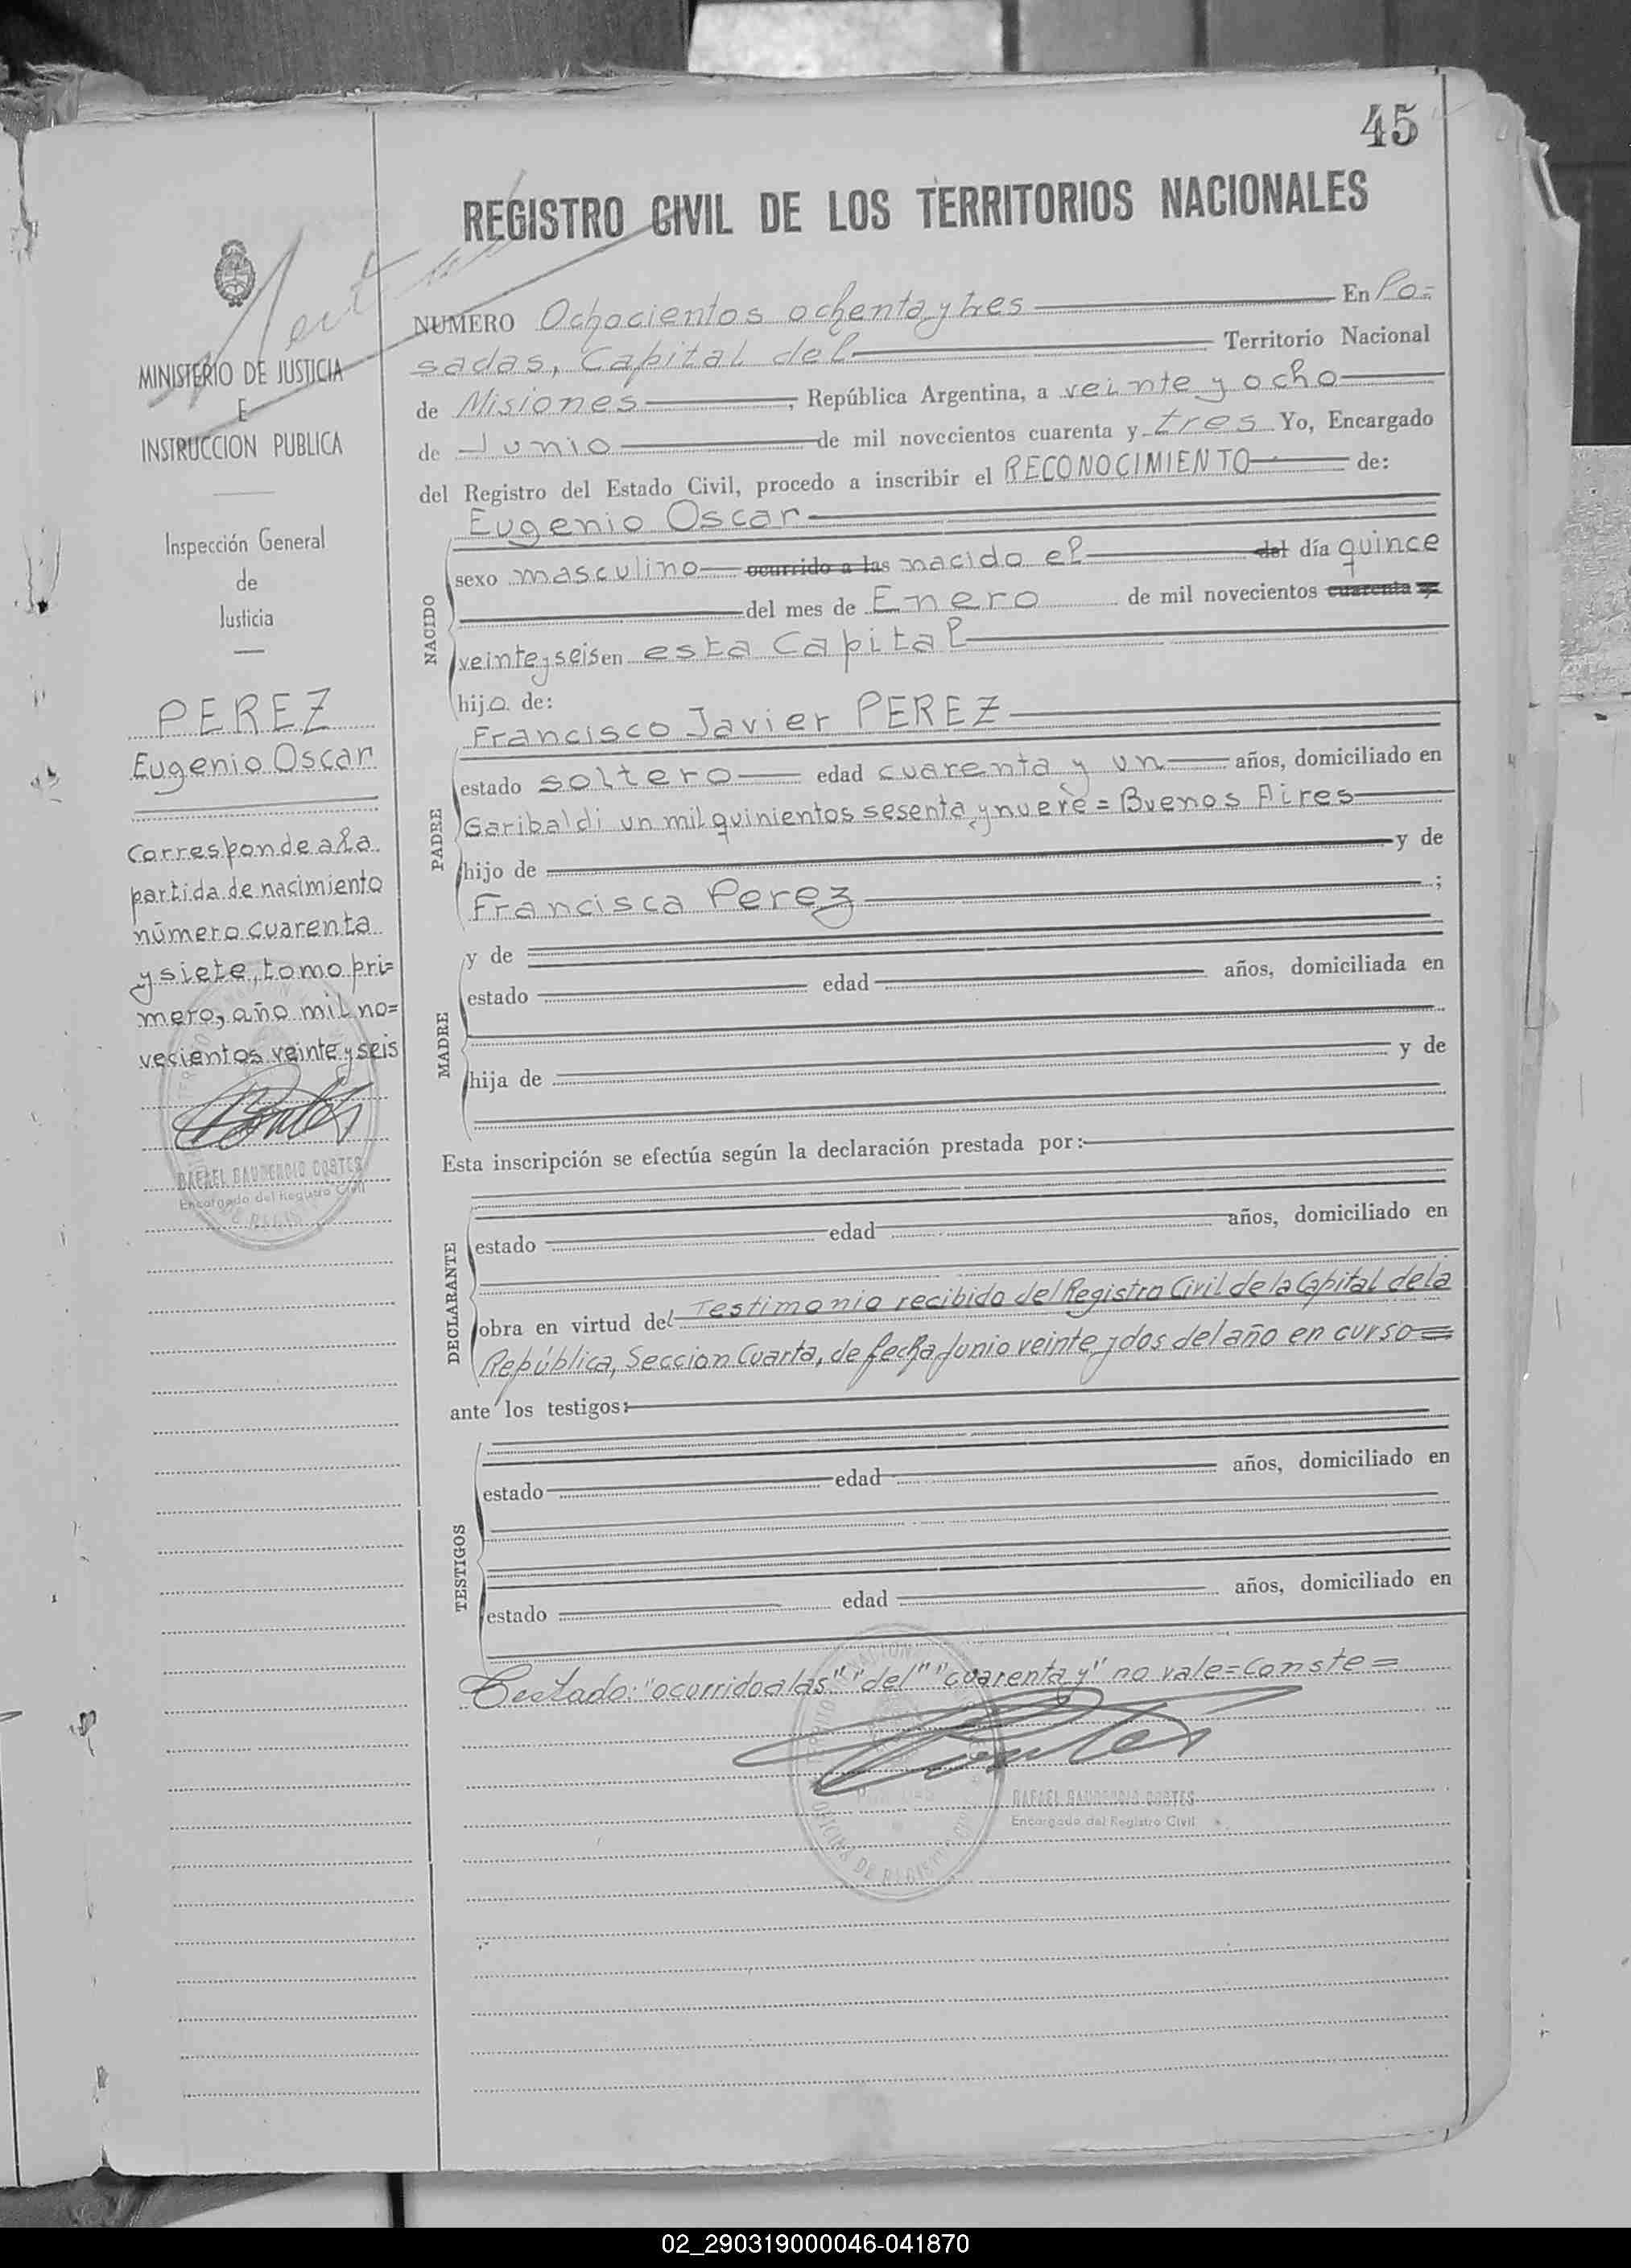 45
REGISTRO CIVIL DE LOS TERRITORIOS NACIONALES
MINISTERIO DE JUSTICIA
E
INSTRUCCION PUBLICA
Inspección General
de
Justicia
PEREZ
Eugenio Oscar
Corresponde a la
partida de nacimiento
número cuarenta
y siete, tomo pri=
mero, año mil no=
vecientos veinte y seis
RAFAEL GAUDENCIO CORTES
Encargado del Registro Civil
NUMERO Ochocientos ochenta y tres En Po=
sadas, Capital del Territorio Nacional
de Misiones, República Argentina, a veinte y ocho
de Junio de mil novecientos cuarenta y tres Yo, Encargado
del Registro del Estado Civil, procedo a inscribir el RECONOCIMIENTO de:
NACIDO
Eugenio Oscar
sexo masculino ocurrido a las nacido el del día quince
del mes de Enero de mil novecientos cuarenta y
veinte y seis en esta Capital
hijo de:
PADRE
Francisco Javier PEREZ
estado soltero edad cuarenta y un años, domiciliado en
Garibaldi un mil quinientos sesenta y nueve = Buenos Aires
hijo de y de
Francisca Perez ;
MADRE
y de
estado edad años, domiciliada en
hija de y de
Esta inscripción se efectúa según la declaración prestada por:
DECLARANTE
estado edad años, domiciliado en
obra en virtud del Testimonio recibido del Registro Civil de la Capital de la
República, Seccion Cuarta, de fecha Junio veinte y dos del año en curso =
ante los testigos:
TESTIGOS
estado edad años, domiciliado en
estado edad años, domiciliado en
Testado: "ocurrido a las" "del" "cuarenta y" no vale = Conste =
RAFAEL GAUDENCIO CORTES
Encargado del Registro Civil
02_290319000046-041870